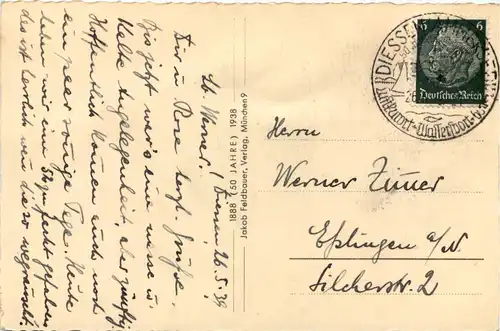 Lb. Werner! Diessen 26.5.39
Dir u. Rose herzl. Grüße.
Bis jetzt war's eine nasse u.
kalte Angelegenheit, aber zünftig
Hoffentlich kommen auch noch
ein paar sonnige Tage. Heute
haben wir ein gefahren
das ist herrlich wenn die so
1888 (50 JAHRE) 1938
Jakob Feldbauer, Verlag, München 9
DIESSEN
6
Deutsches Reich
Luftkurort-Wassersport
Herrn
Werner Zimmer
Eßlingen a/N.
Silcherstr. 2